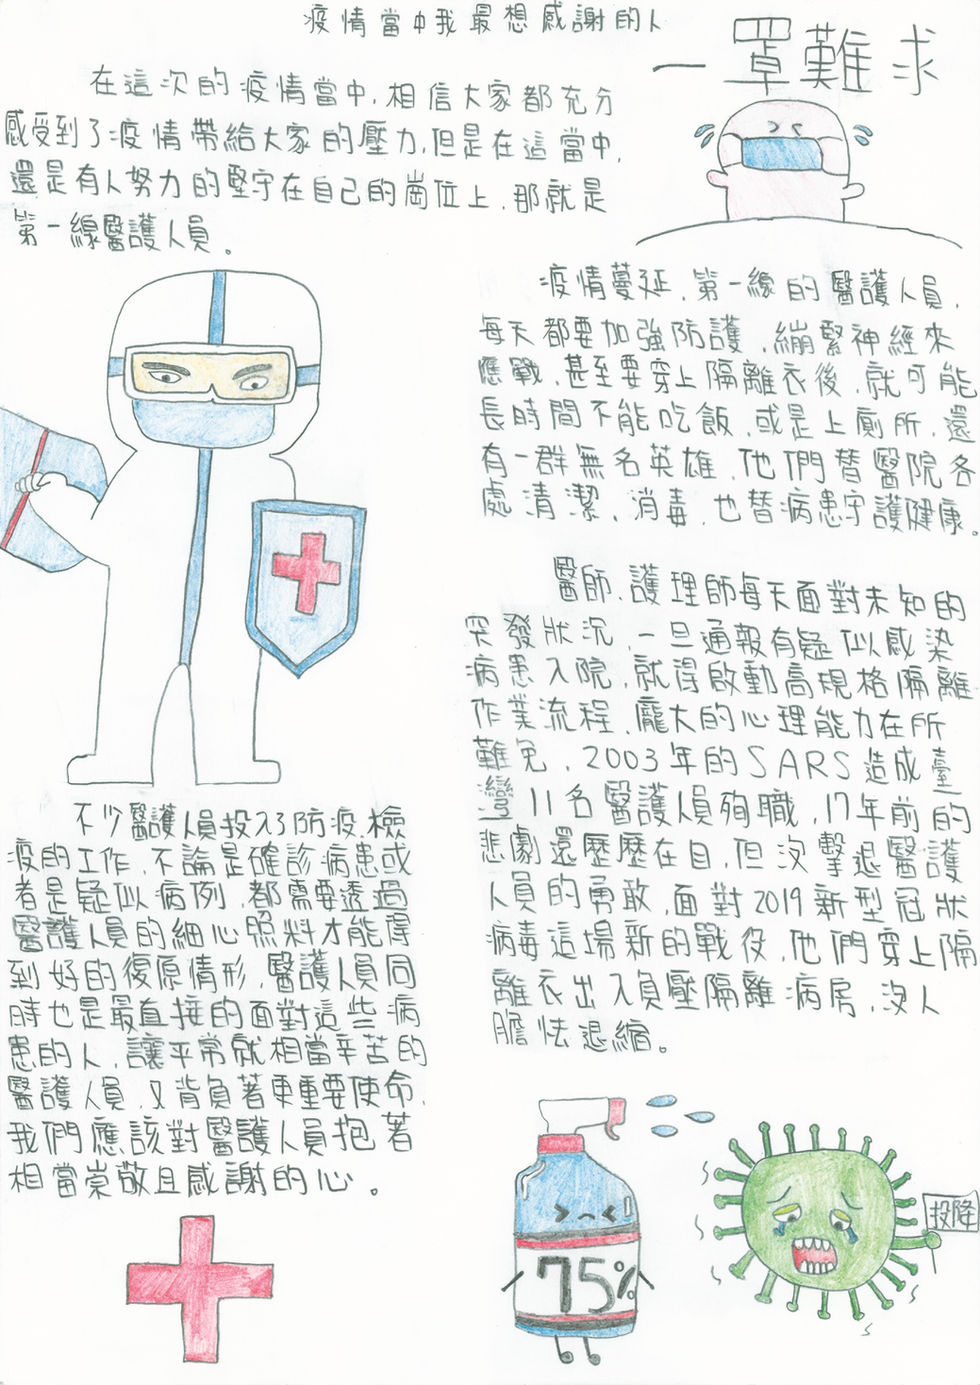 疫情當中我最想感謝的人
一罩難求
在這次的疫情當中,相信大家都充分
感受到了疫情帶給大家的壓力,但是在這當中,
還是有人努力的堅守在自己的崗位上,那就是
第一線醫護人員。
疫情蔓延,第一線的醫護人員,
每天都要加強防護,繃緊神經來
應戰,甚至要穿上隔離衣後,就可能
長時間不能吃飯,或是上廁所,還
有一群無名英雄,他們替醫院各
處清潔、消毒,也替病患守護健康。
醫師、護理師每天面對未知的
突發狀況,一旦通報有疑似感染
病患入院,就得啟動高規格隔離
作業流程,龐大的心理能力在所
難免,2003年的SARS造成臺
灣11名醫護人員殉職,17年前的
悲劇還歷歷在目,但沒擊退醫護
人員的勇敢,面對2019新型冠狀
病毒這場新的戰役,他們穿上隔
離衣出入負壓隔離病房,沒人
膽怯退縮。
不少醫護人員投入了防疫、檢
疫的工作,不論是確診病患或
者是疑似病例,都需要透過
醫護人員的細心照料才能得
到好的復原情形,醫護人員同
時也是最直接的面對這些病
患的人,讓平常就相當辛苦的
醫護人員,又背負著更重要使命,
我們應該對醫護人員抱著
相當崇敬且感謝的心。
75%
投降